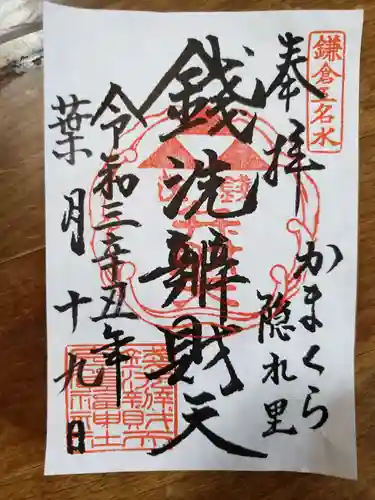 鎌倉五名水
奉拝
かまくら
隠れ里
銭洗辨財天
令和三辛丑年
葉月
十九日